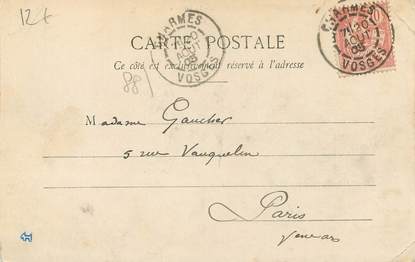 12€
CHARMES
VOSGES
CHARMES
VOSGES
CARTE POSTALE
Ce côté est exclusivement réservé à l'adresse
88
Madame Gaucher
5 rue Vauquelin
Paris